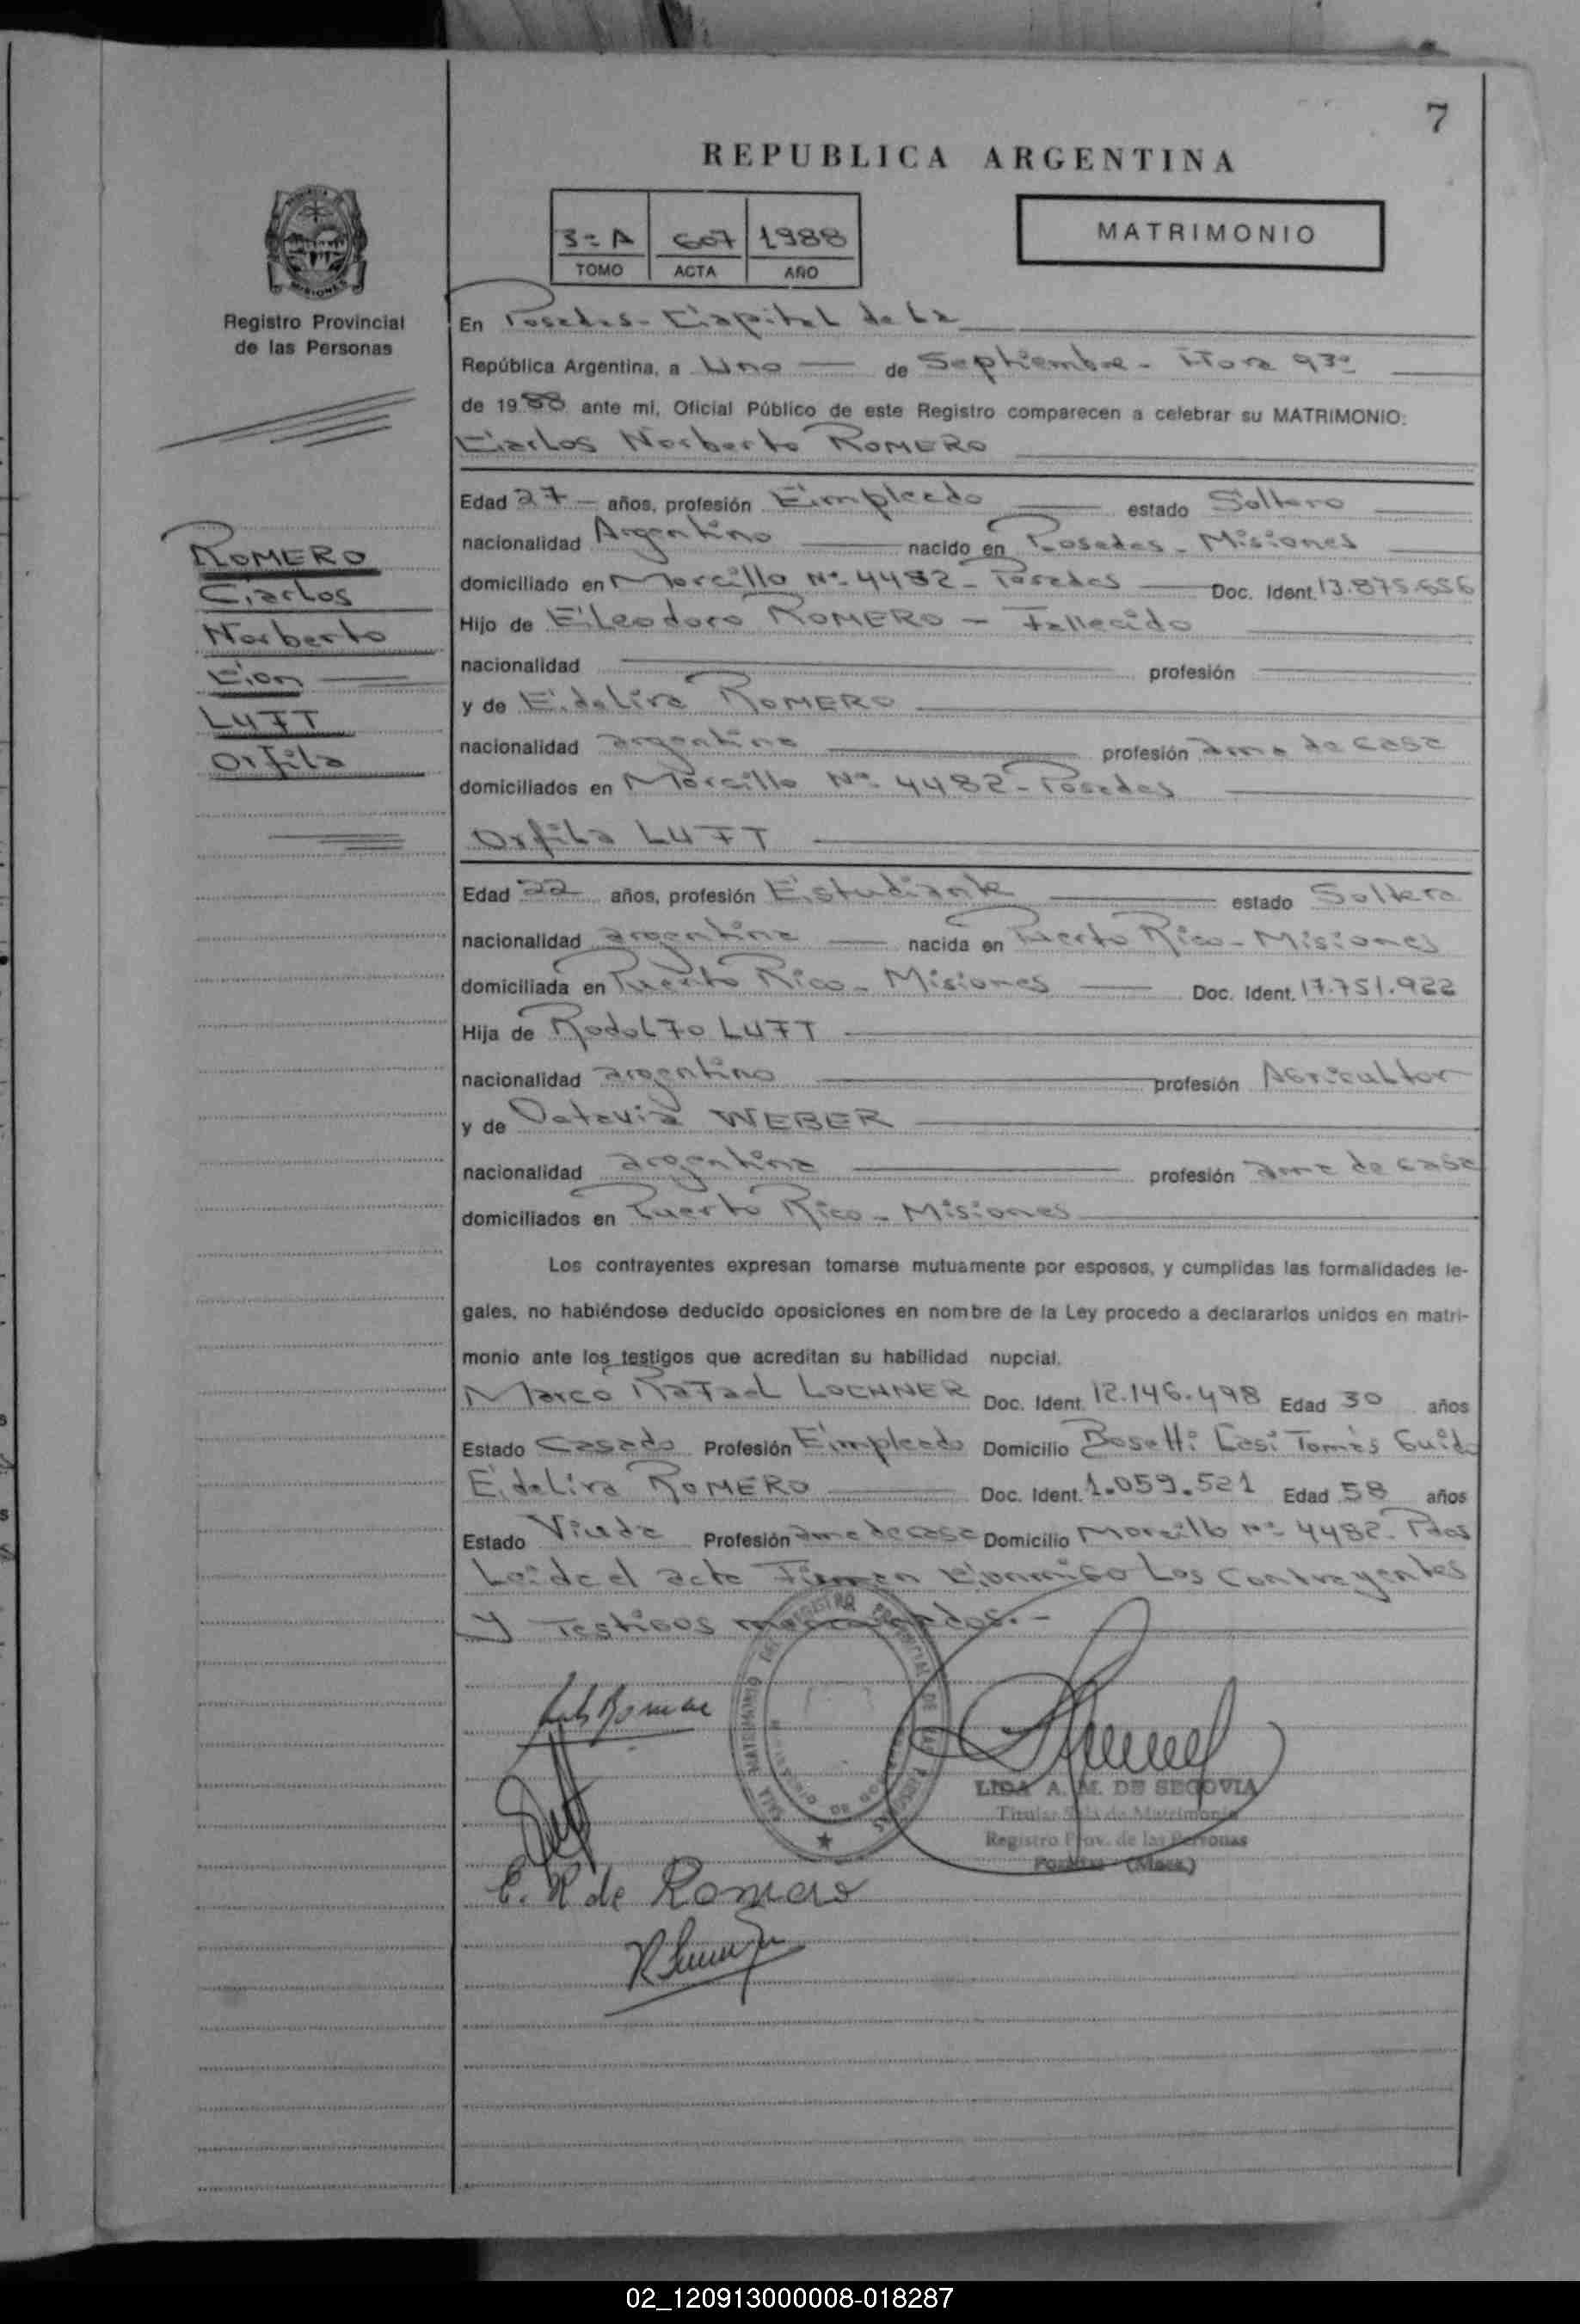 7
REPUBLICA ARGENTINA
3º A 607 1988
TOMO ACTA AÑO
MATRIMONIO
MISIONES
Registro Provincial
de las Personas
ROMERO
Carlos
Norberto
Con
LUFT
Orfila
En Posadas - Capital de la
República Argentina, a Uno de Septiembre - Hora 930
de 1988 ante mí, Oficial Público de este Registro comparecen a celebrar su MATRIMONIO:
Carlos Norberto ROMERO
Edad 27 años, profesión Empleado estado Soltero
nacionalidad Argentino nacido en Posadas - Misiones
domiciliado en Morcillo Nº 4482 - Posadas Doc. Ident. 13.875.656
Hijo de Eleodoro ROMERO - Fallecido
nacionalidad profesión
y de Edelira ROMERO
nacionalidad argentina profesión ama de casa
domiciliados en Morcillo Nº 4482 - Posadas
Orfila LUFT
Edad 22 años, profesión Estudiante estado Soltera
nacionalidad argentina nacida en Puerto Rico - Misiones
domiciliada en Puerto Rico - Misiones Doc. Ident. 17.751.922
Hija de Rodolfo LUFT
nacionalidad argentino profesión Agricultor
y de Octavia WEBER
nacionalidad argentina profesión ama de casa
domiciliados en Puerto Rico - Misiones
Los contrayentes expresan tomarse mutuamente por esposos, y cumplidas las formalidades le-
gales, no habiéndose deducido oposiciones en nombre de la Ley procedo a declararlos unidos en matri-
monio ante los testigos que acreditan su habilidad nupcial.
Marco Rafael LOCHNER Doc. Ident. 12.146.498 Edad 30 años
Estado Casado Profesión Empleado Domicilio Bosetti Casi Tomás Guido
Edelira ROMERO Doc. Ident. 1.059.521 Edad 58 años
Estado Viuda Profesión ama de casa Domicilio Morcillo Nº 4482 - Pdas
Leida el acta Firman Conmigo Los Contrayentes
Y Testigos mencionados.-
SALA MATRIMONIO DEL REGISTRO PROVINCIAL DE LAS PERSONAS
LIDA A. M. DE SEGOVIA
Titular Sala de Matrimonio
Registro Prov. de las Personas
Posadas (Mnes.)
E. R de Romero
02_120913000008-018287